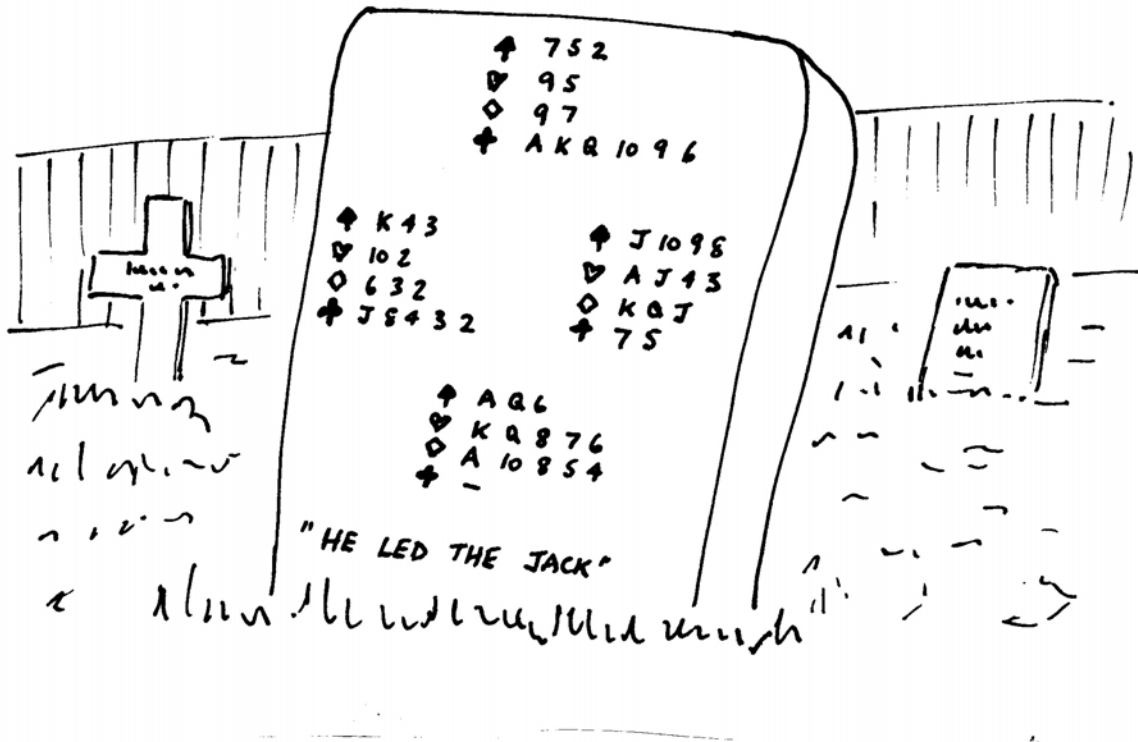 ♠ 752
♥ 95
♦ 97
♣ AKQ1096
♠ K43
♥ 102
♦ 632
♣ J8432
♠ J1098
♥ AJ43
♦ KQJ
♣ 75
♠ AQ6
♥ KQ876
♦ A10854
♣ –
"HE LED THE JACK"